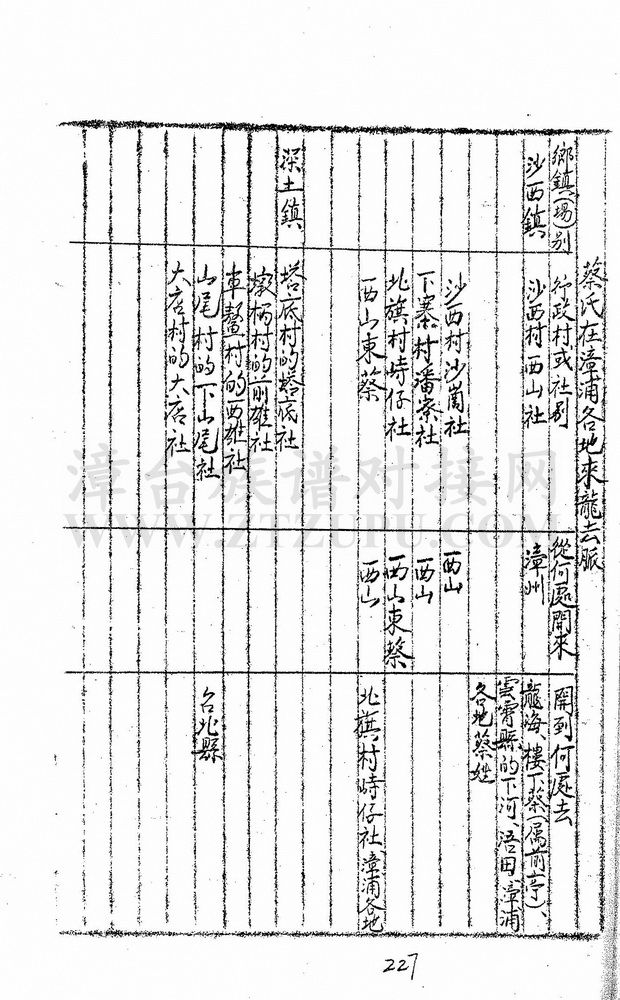 蔡氏在漳浦各地來龍去脈
鄉鎮(場)别
行政村或社别
從何處開來
開到何處去
沙西鎮
沙西村西山社
漳州
龍海、樓下蔡(属前亭)、
雲霄縣的下河、浯田、漳浦
各地蔡姓
沙西村沙崗社
西山
下寨村潘寮社
西山
北旗村峙仔社
西山東蔡
西山東蔡
西山
北旗村峙仔社、漳浦各地
深土鎮
塔底村的塔底社
墩柄村的前雄社
車鰲村的西雄社
山尾村的下山尾社
台北縣
大店村的大店社
227
漳台族谱对接网
WWW.ZTZUPU.COM